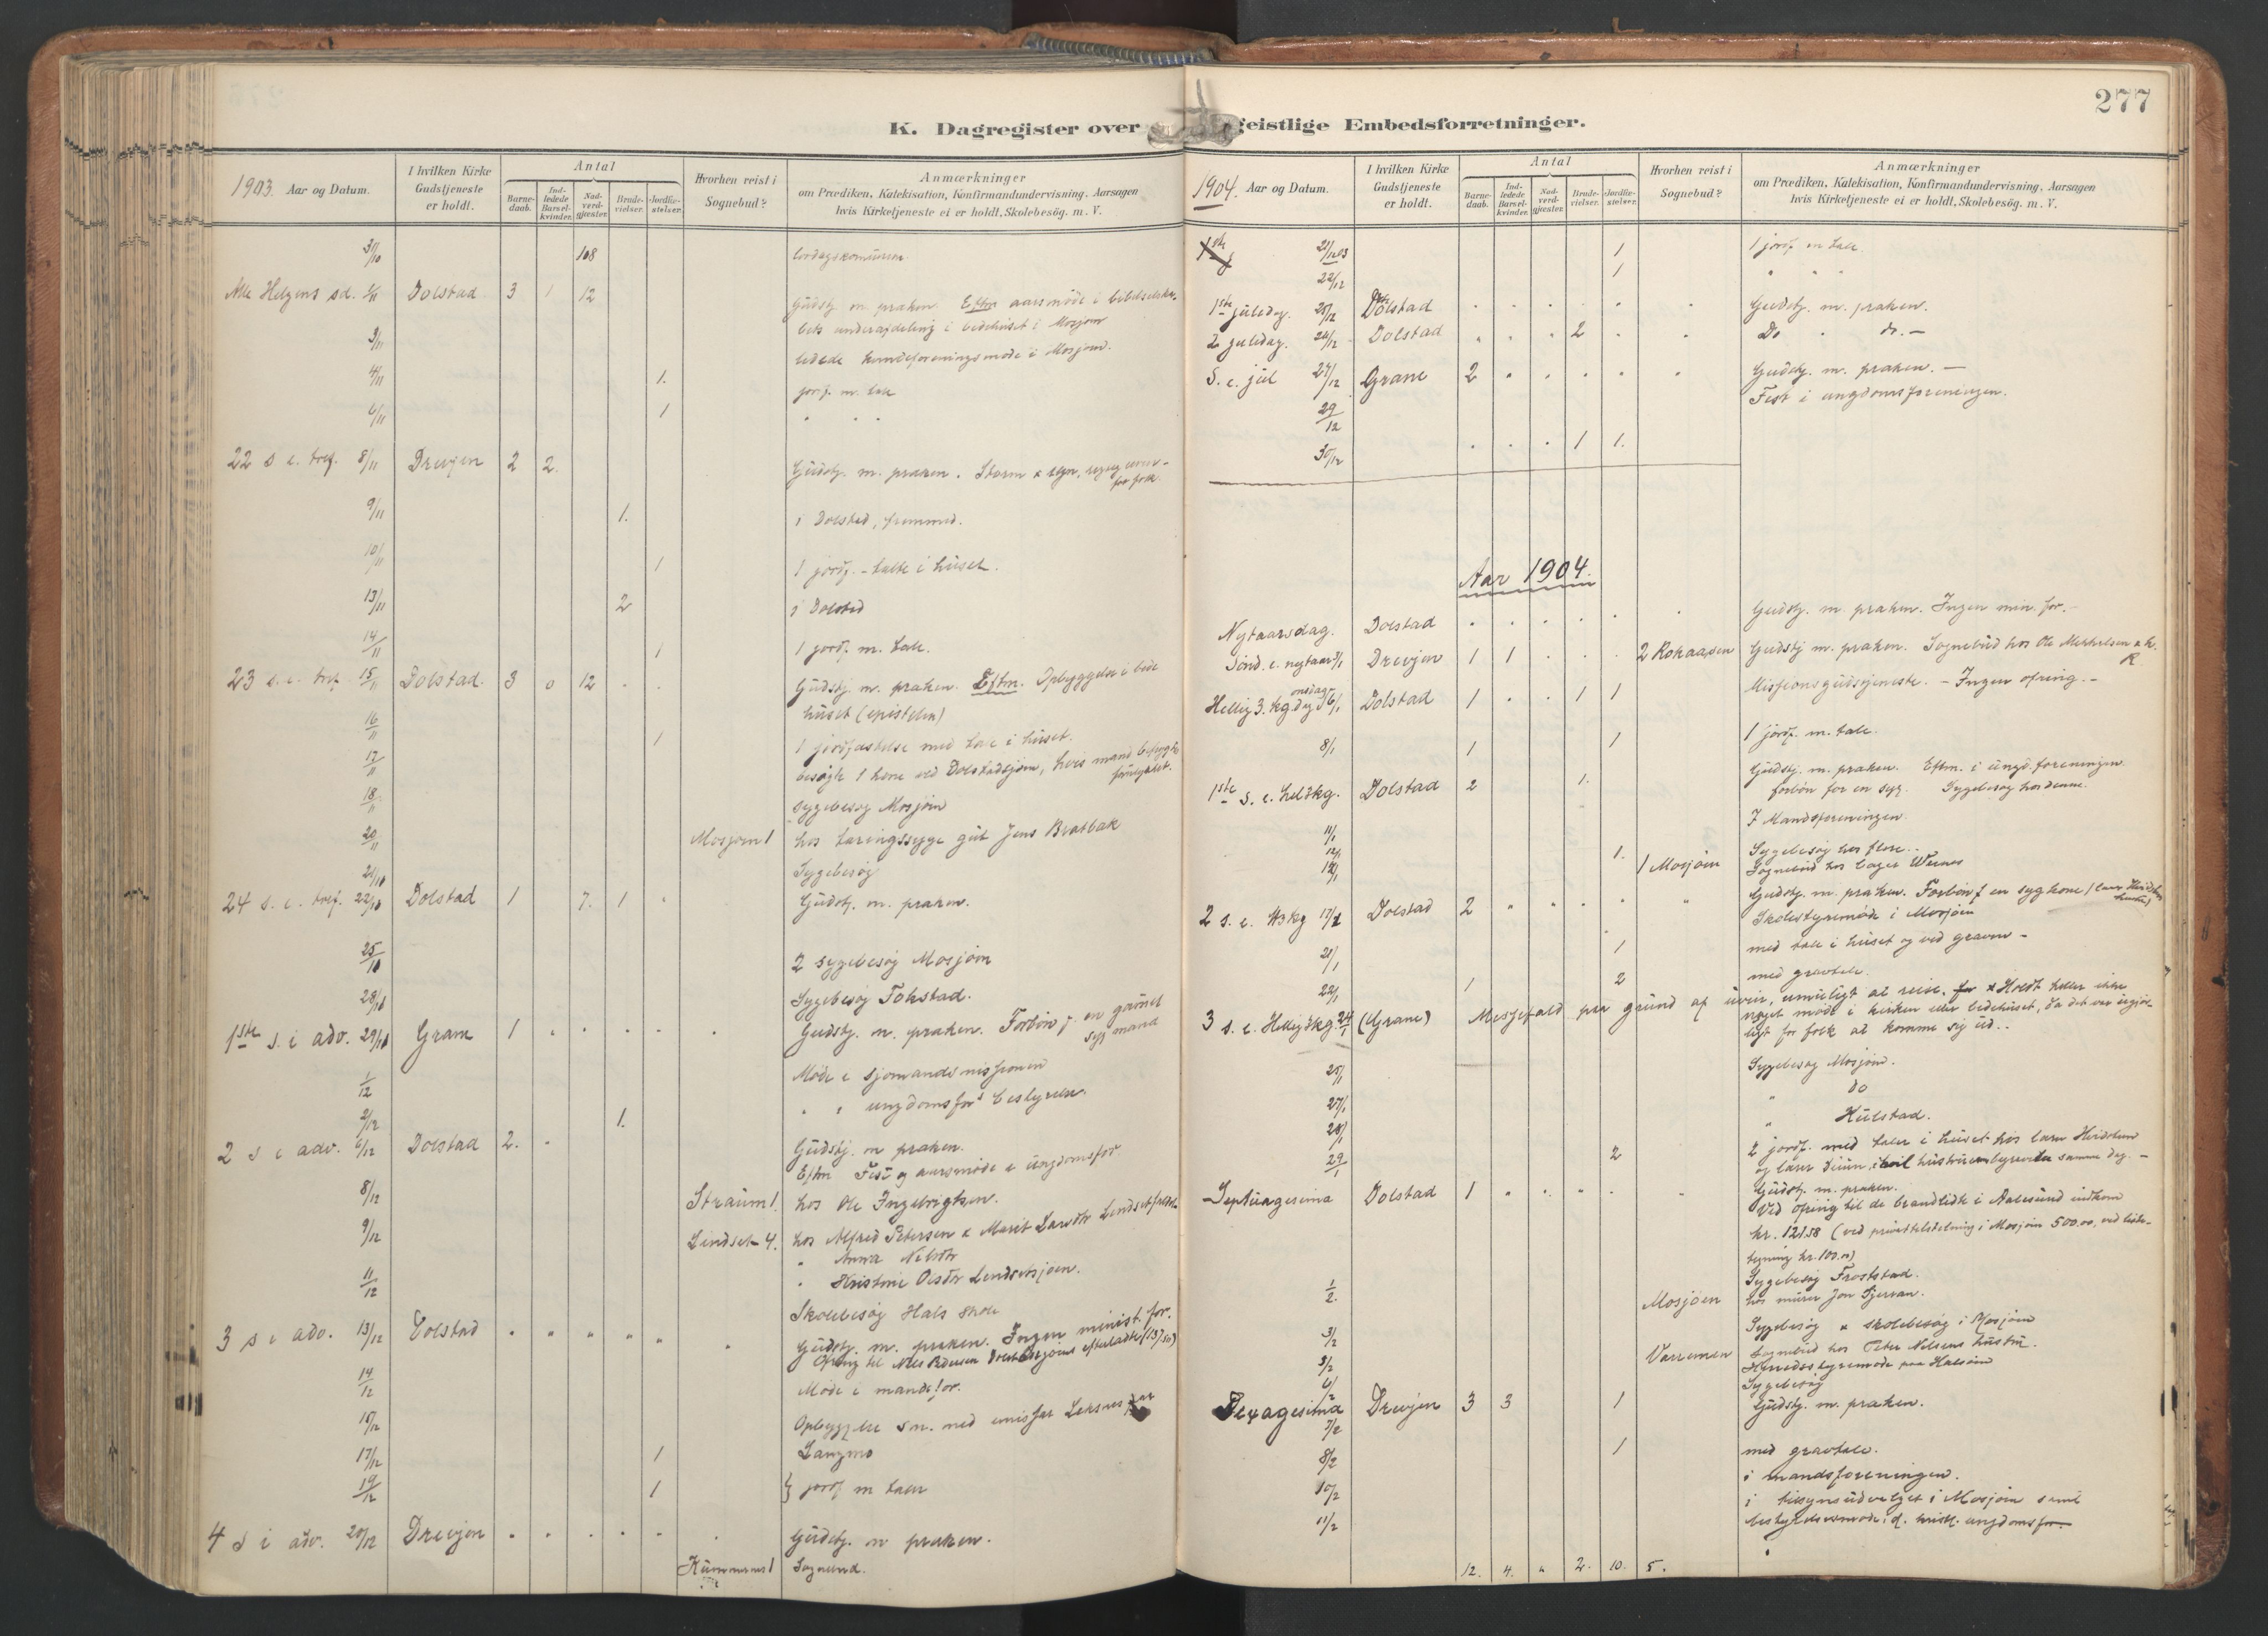 K. Dagregister over geistlige Embedsforretninger.
277
1903. Aar og Datum.
I hvilken Kirke Gudstjeneste er holdt.
Antal
Barnedaab.
Indledede Barselkvinder.
Nadverdgjester.
Brudevielser.
Jordfæstelser.
Hvorhen reist i Sognebud?
Anmærkninger
om Prædiken, Katekisation, Konfirmandundervisning, Aarsagen
hvis Kirketjeneste ei er holdt, Skolebesög. m. V.
31/10 108
Alle Helgens sd. 1/11 Dolstad 3 1 12 Gudstj. m. præken. Eftm aarsmøde i bibelselska-
bets underafdeling i bedehuset i Mosjøen
3/11 ledede møde i Mosjøen.
4/11 1. jordf. m. tale
6/11 1 " " "
22 s. e. tref. 8/11 Drevjen 2 2. Gudstj. m. præken. Storm & regn,
for folk.
9/11 1. i Dolstad, fremmed.
10/11 1 1 jordf. - talte i huset.
13/11 2 i Dolstad
14/11 1 1 jordf. m. tale.
23 s. e. tref. 15/11 Dolstad. 3 0 12 . . Gudstj. m. præken. Eftm. Opbyggelse i bede
huset (epistelen)
16/11 1 1 jordfæstelse med tale i huset.
17/11 besøgte 1 kone ved Dolstadsjøen, hvis mand
18/11 sygebesøg Mosjøen
20/11 Mosjøen 1 hos tæringssyge gut Jens Bratbak
21/11 Sygebesøg
24 s. e. tref. 22/11 Dolstad 1 7. 1 . Gudstj. m. præken.
25/11 2 sygebesøg Mosjøen
28/11 Sygebesøg Tokstad.
1ste s. i adv. 29/11 Grane 1 . . . . . Gudstj. m. præken. Forbøn f. en
syg mand
1/12 Møde i sjømandsmissionen
2/12 1. " " ungdomsfor's bestyrelse.
2 s i adv. 6/12 Dolstad 2. . Gudstj. m præken.
Eftm Fest og aarsmøde i ungdomsfor.
8/12 Straum 1. hos Ole Ingebrigtsen.
9/12 Lindset 4. hos Alfred Petersen & Marit Larsdtr
" Anna Nilsdtr
11/12 " Kristine Olsdtr Lindsetsjøen.
Skolebesøg Hals skole
3 s i adv. 13/12 Dolstad . . . . . . Gudstj. m. præken. Ingen minist. for.
Ofring til Nils Pedersen efterladte (137.50)
14/12 Møde i mandsfor.
15/12 Opbyggelse sm. med
17/12 1 Langmo
19/12 1 } jordf m taler
4 s i adv. 20/12 Drevjen . . . . . . Gudstj. m præken.
1
1904. Aar og Datum.
I hvilken Kirke Gudstjeneste er holdt.
Antal
Barnedaab.
Indledede Barselkvinder.
Nadverdgjester.
Brudevielser.
Jordfæstelser.
Hvorhen reist i Sognebud?
Anmærkninger
om Prædiken, Katekisation, Konfirmandundervisning, Aarsagen
hvis Kirketjeneste ei er holdt, Skolebesög. m. V.
21/12 03 1 1 jordf. m tale.
22/12 1 " " "
1ste juledag. 25/12 Dolstad . . . . . . Gudstj. m. præken.
2 juledag. 26/12 Dolstad . . . 2 . . Do " do. -
S. e. jul 27/12 Grane 2 . . . . . Gudstj. m. præken. -
29/12 Fest i ungdomsforeningen.
30/12 . . . 1 1.
Aar 1904.
Nytaarsdag. Dolstad . . . . . . Gudstj. m. præken. Ingen min. for. -
Sønd. e. nytaar 3/1 Drevjen 1 1 . . . 2 Gudstj m. præken. Sognebud hos Ole Mikkelsen & k.
Hellig 3. kg. dag onsdag 6/1 Dolstad 1 . . 1 1 Missionsgudstjeneste. - Ingen ofring. -
8/1 1 1 1 jordf. m. tale.
1ste s. e. hel3kg. Dolstad 2 1. Gudstj. m. præken. Eftm. i ungd.foreningen.
forbøn for en syg. Sygebesøg hos denne.
11/1 I Mandsforeningen.
12/1 1. Sygebesøg hos flere.
1 Mosjøen Sognebud hos
2 s. e. H3kg 17/1 Dolstad 2 . . . . . Gudstj. m. præken. Forbøn f en syg kone
Skolestyremøde i Mosjøen
21/1 1 med tale i huset og ved graven -
22/1 1 2 med gravtale.
3 s. e. Hellig3kg. 24/1 (Grane) Messefald paa grund af uveir, umuligt at reise. Holdt heller ikke
noget møde i kirken eller bedehuset, da det var ugjør-
ligt for folk at komme sig ud..
25/1 Sygebesøg Mosjøen.
27/1 " do
28/1 " Hulstad.
29/1 2 2 jordf. med taler i huset hos
og lærer samme dag. -
Septuagesima Dolstad 1 . . . . . Gudstj. m. præken.
Ved ofring til de brandlidte i Aalesund indkom
kr. 121.58 (ved i Mosjøen 500.00, ved liste-
tegning kr. 100.00)
Sygebesøg
1/2. Mosjøen hos murer Jon
3/2 Sygebesøg & skolebesøg i Mosjøen
5/2 Sognebud hos Peter Nilsens hustru.
Herredsstyremøde paa Halsøen
6/2 Sygebesøg
Sexagesima 7/2 Drevjen 3 3 1 Gudstj. m. præken.
8/2 1 med gravtale.
i mandsforeningen.
10/2 i tilsynsudvalget i Mosjøen samt
11/2 bestyrelsesmøde i d. kristl. ungdomsfor.
12. 4. " 2. 10. 5.